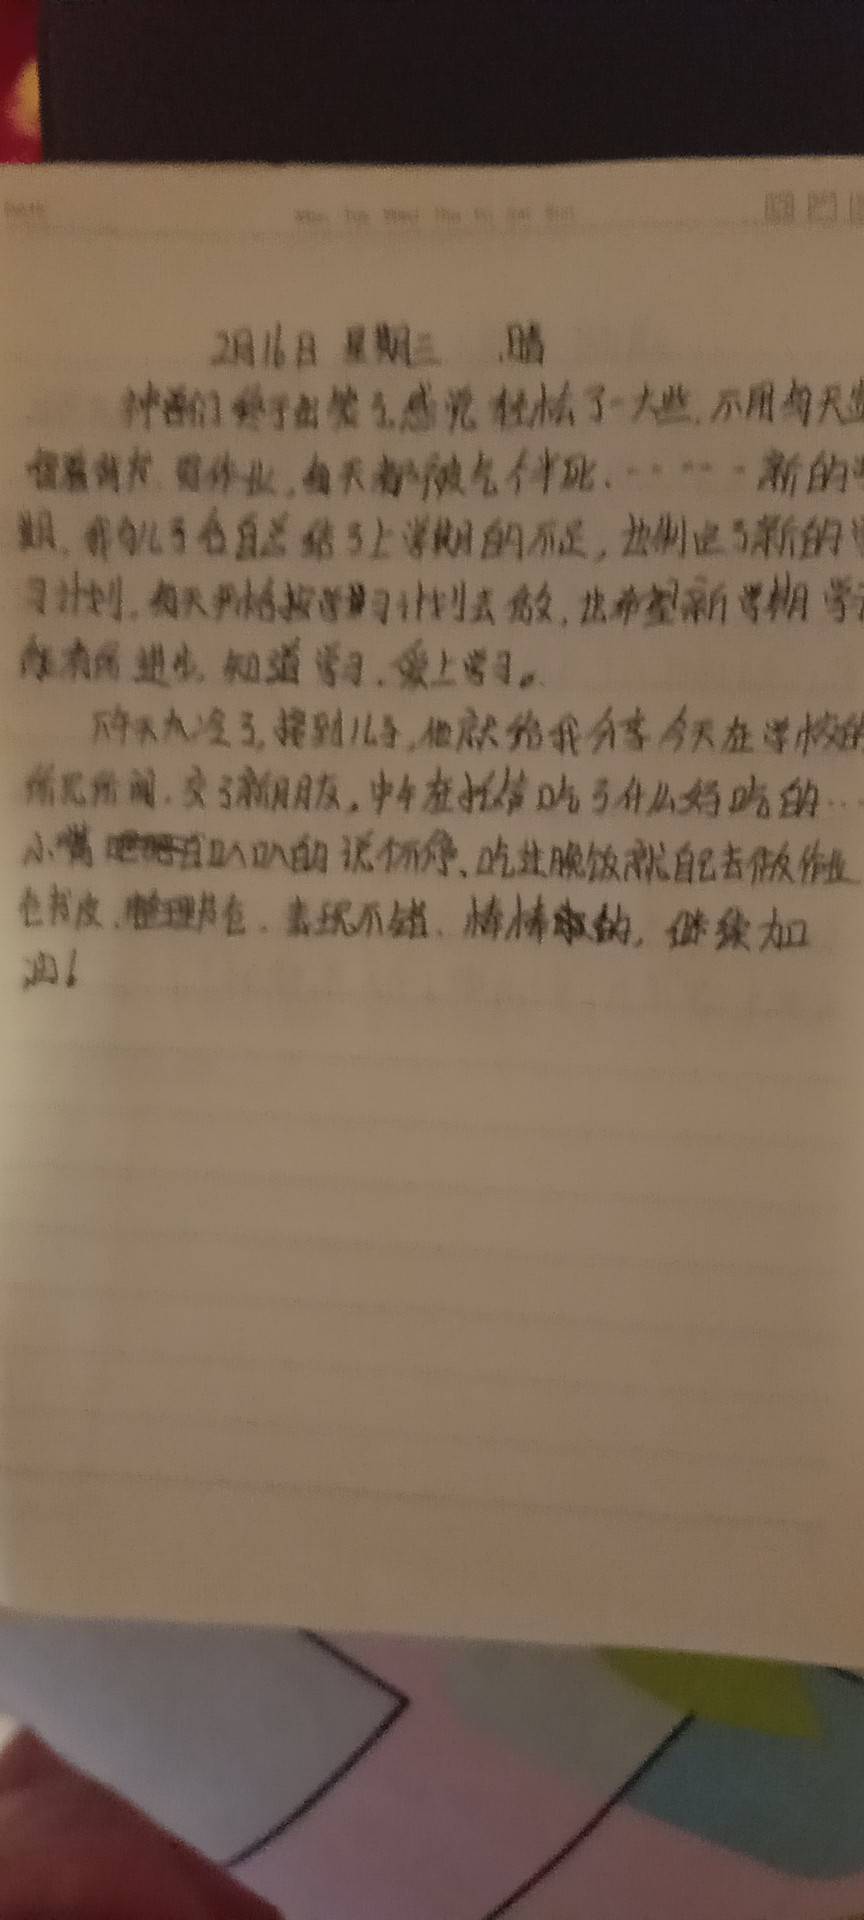 Mon Tue Wed Thu Fri Sat Sun
2月16日 星期三 晴
神兽们终于出笼了,感觉轻松了一大些,不用每天
作业,每天都被气个半死、…… 新的
期,我和儿子各自总结了上学期的不足,也制定了新的
习计划,每天严格按学习计划去做,也希望新学期学
能有所进步,知道学习,爱上学习。
下午天太冷了,接到儿子,他就给我分享今天在学校的
所见所闻,交了新朋友,中午在托管吃了什么好吃的…
小嘴叭叭的说个不停、吃过晚饭就自己去做作业
包书皮、整理书包、表现不错、棒棒的,继续加
油!